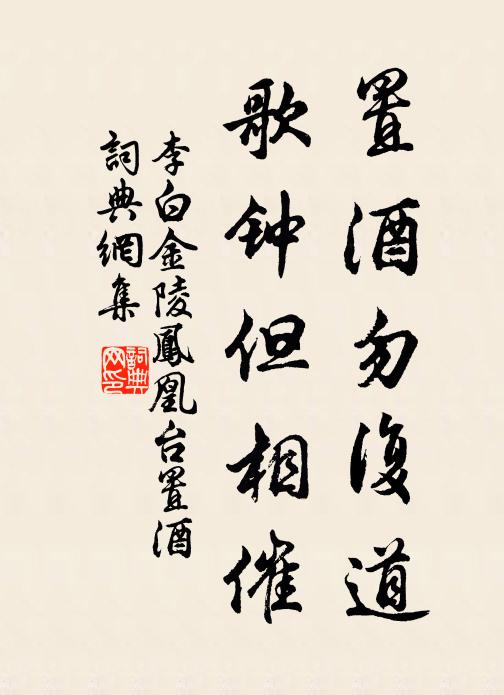 置酒勿復道
歌钟但相催
李白金陵鳳凰台置酒
詞典網集
詞典网印